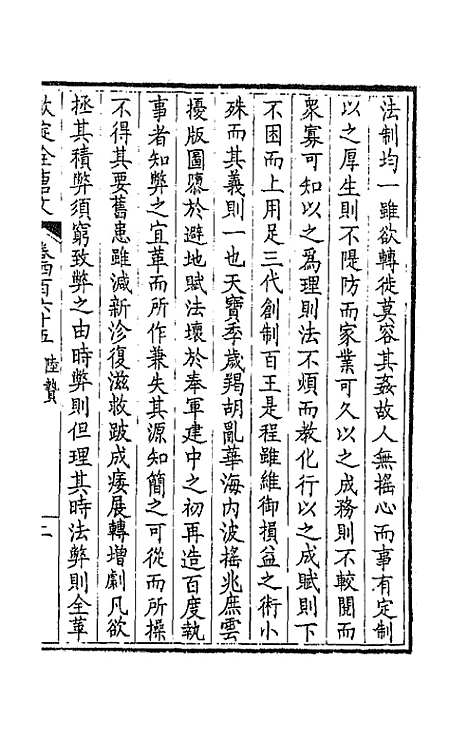 法制均一雖欲轉徙莫容其姦故人無揺心而事有定制
以之厚生則不隄防而家業可久以之成務則不較閲而
衆寡可知以之為理則法不煩而教化行以之成賦則下
不困而上用足三代創制百王是程雖維御損益之術小
殊而其義則一也天寶季歲羯胡亂華海内波揺兆庶雲
擾版圖隳於避地賦法壞於奉軍建中之初再造百度執
事者知弊之宜革而所作兼失其源知簡之可從而所操
不得其要舊患雖減新沴復滋救跛成痿展轉增劇凡欲
拯其積弊須窮致弊之由時弊則但理其時法弊則全革
欽定全唐文
卷四百六十五
陸贄
二